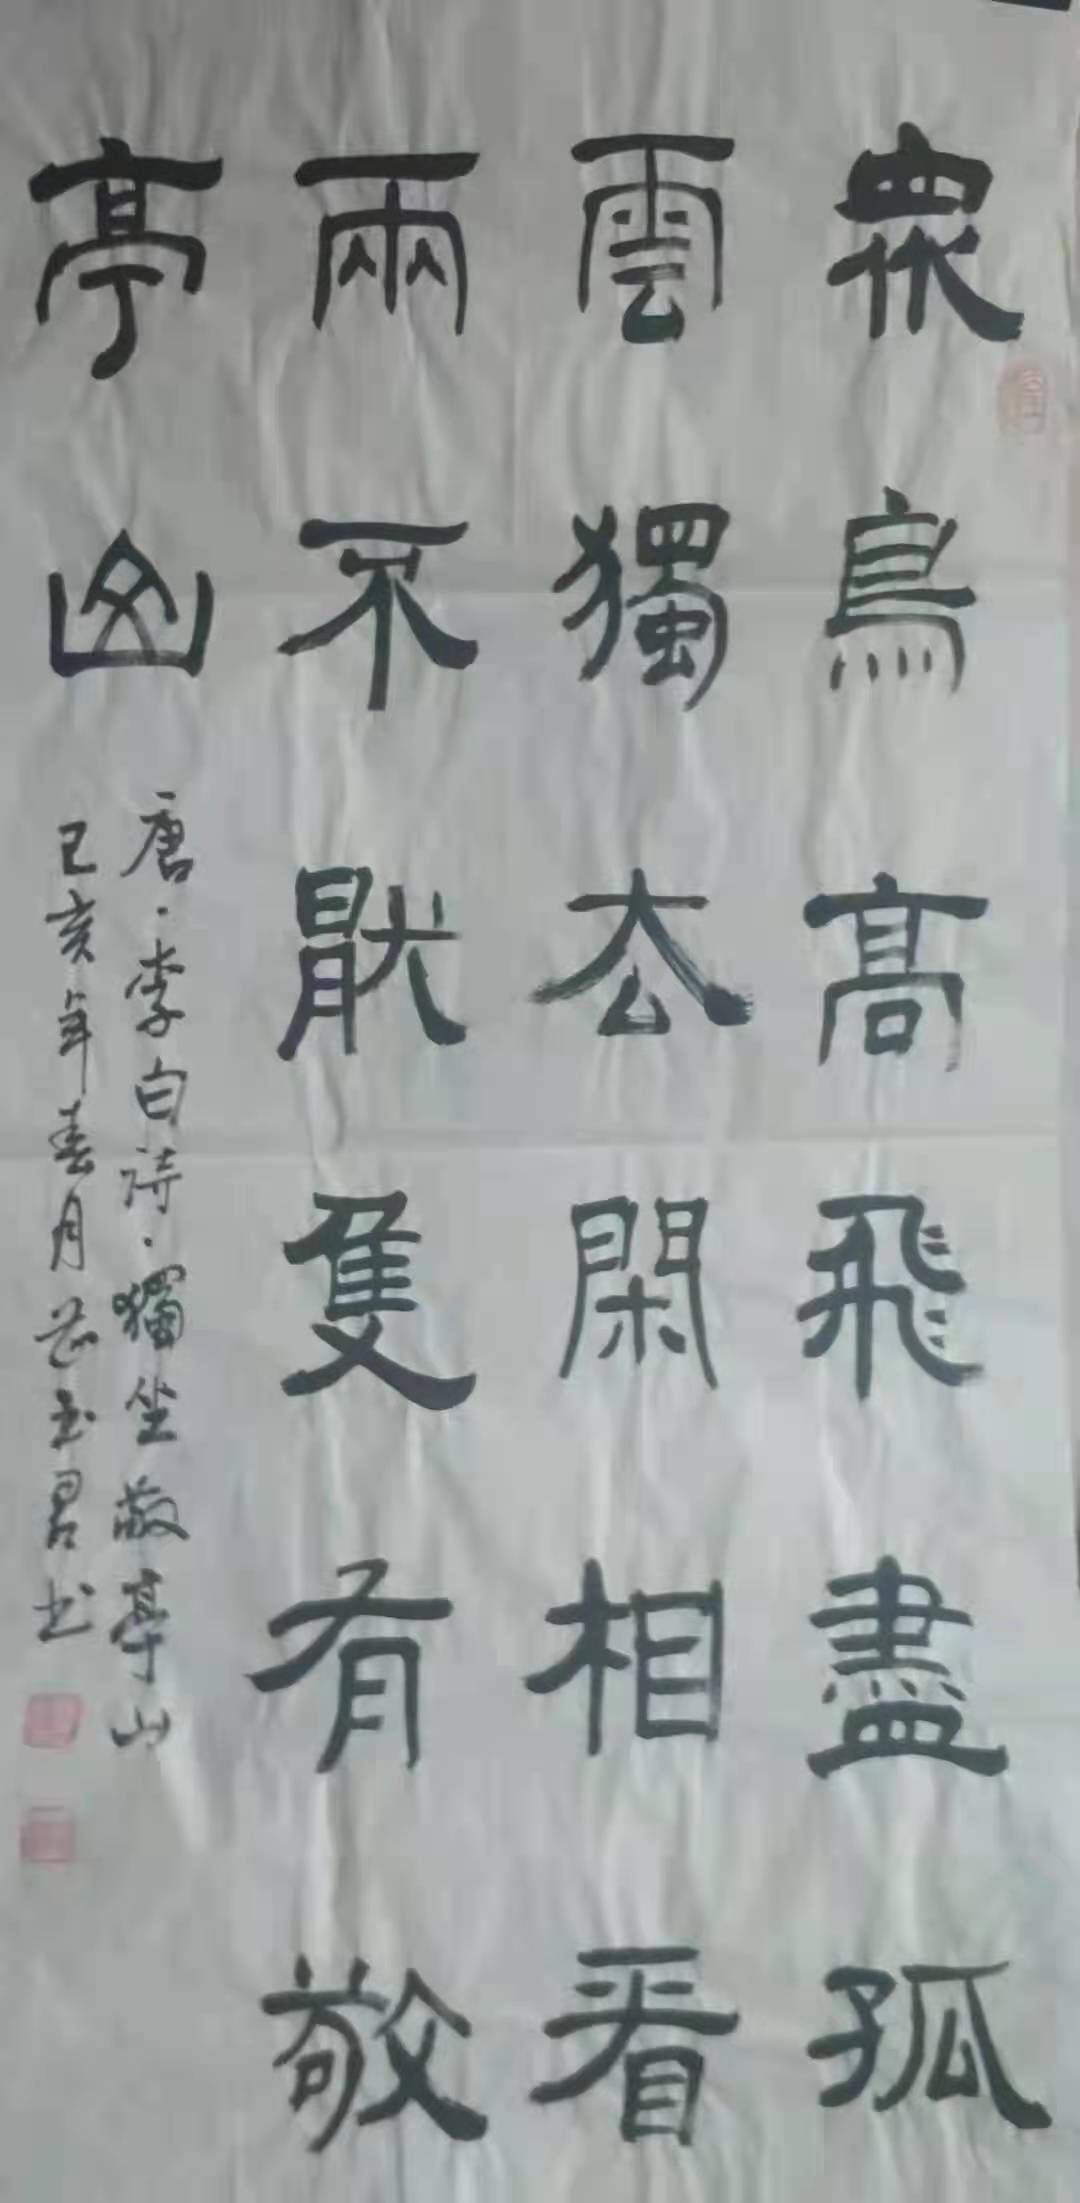 眾鳥高飛盡孤
雲獨去閑相看
兩不猒隻有敬
亭山
唐·李白诗·獨坐敬亭山
己亥年春月 玉君书